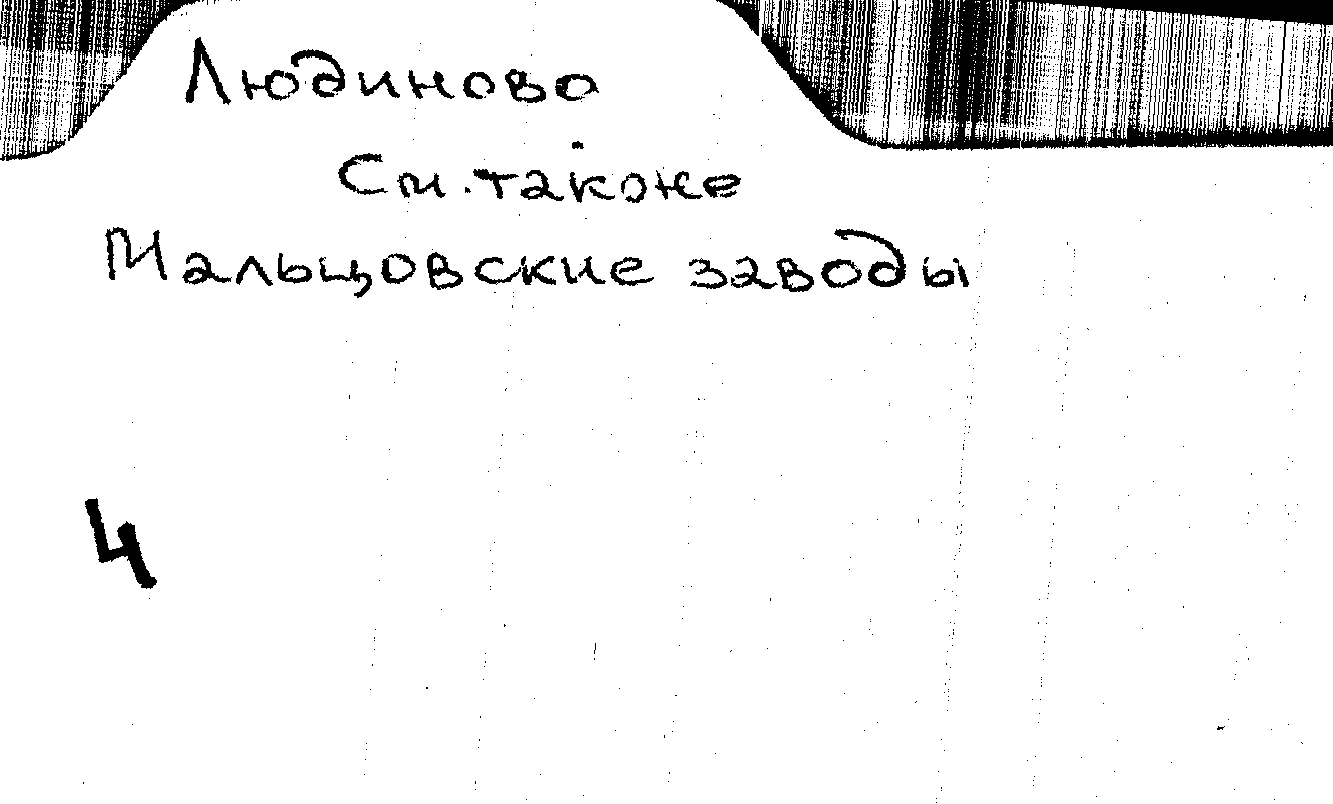 Людиново
См. также
Мальцовские заводы
4